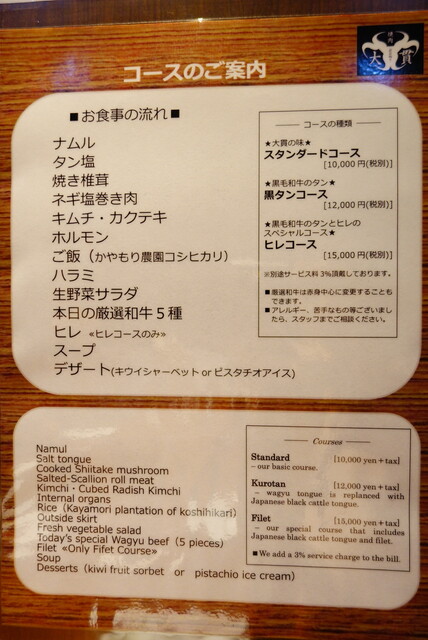 焼肉
大貫
コースのご案内
■お食事の流れ■
ナムル
タン塩
焼き椎茸
ネギ塩巻き肉
キムチ・カクテキ
ホルモン
ご飯（かやもり農園コシヒカリ）
ハラミ
生野菜サラダ
本日の厳選和牛５種
ヒレ «ヒレコースのみ»
スープ
デザート(キウイシャーベット or ピスタチオアイス)
コースの種類
★大貫の味★
スタンダードコース
[10,000 円(税別)]
★黒毛和牛のタン★
黒タンコース
[12,000 円(税別)]
★黒毛和牛のタンとヒレの
スペシャルコース★
ヒレコース
[15,000 円(税別)]
※別途サービス料 3%頂戴しております。
■厳選和牛は赤身中心に変更することも
できます。
■アレルギー、苦手なもの等ございまし
たら、スタッフまでご相談ください。
Namul
Salt tongue
Cooked Shiitake mushroom
Salted-Scallion roll meat
Kimchi・Cubed Radish Kimchi
Internal organs
Rice（Kayamori plantation of koshihikari）
Outside skirt
Fresh vegetable salad
Today's special Wagyu beef（5 pieces）
Filet «Only Fifet Course»
Soup
Desserts（kiwi fruit sorbet or pistachio ice cream）
Courses
Standard [10,000 yen+tax]
– our basic course.
Kurotan [12,000 yen+tax]
– wagyu tongue is replanced with
Japanese black cattle tongue.
Filet [15,000 yen+tax]
– our special course that includes
Japanese black cattle tongue and filet.
■We add a 3% service charge to the bill.